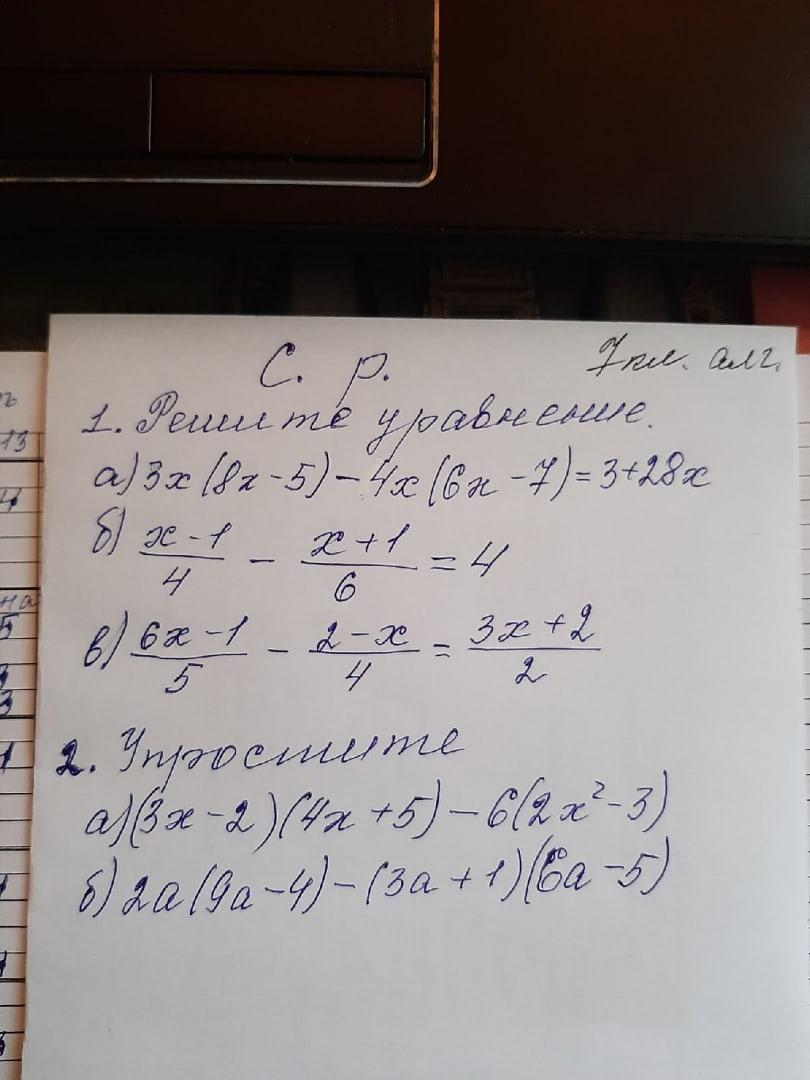 С. р.
7 кл. алг.
1. Решите уравнение.
а) 3x(8x-5)-4x(6x-7)=3+28x
б) (x-1)/4 - (x+1)/6 = 4
в) (6x-1)/5 - (2-x)/4 = (3x+2)/2
2. Упростите
а) (3x-2)(4x+5)-6(2x²-3)
б) 2a(9a-4)-(3a+1)(6a-5)
13
4
на
5
3